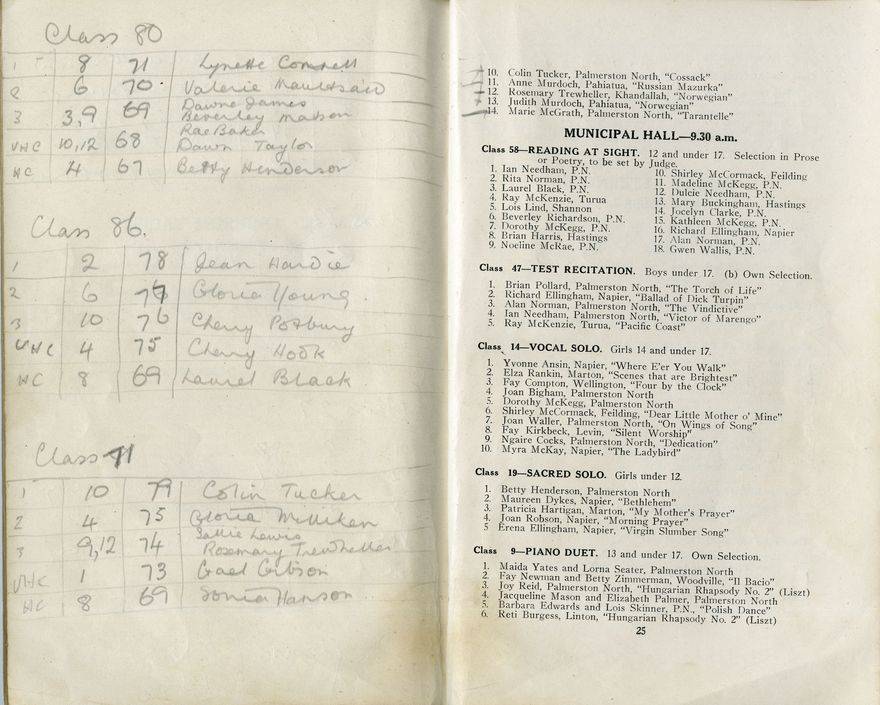 Class 80
1 8 71 Lynette Connell
2 6 70 Valerie
3 3,9 69 Dawne James
Beverley Matson
VHC 10,12 68 Rae Baker
Dawn Taylor
HC 4 67 Betty Henderson
Class 86.
1 2 78 Jean Hardie
2 6 Gloria Young
3 10 76 Cherry Potbury
VHC 4 75 Cherry Hook
HC 8 69 Laurel Black
Class 71
1 10 79 Colin Tucker
2 4 75 Gloria Milliken
3 9,12 74 Sallie Lewis
Rosemary Trewheller
VHC 1 73 Gael Gibson
HC 8 69 Sonia Hanson
10. Colin Tucker, Palmerston North, "Cossack"
11. Anne Murdoch, Pahiatua, "Russian Mazurka"
12. Rosemary Trewheller, Khandallah, "Norwegian"
13. Judith Murdoch, Pahiatua, "Norwegian"
14. Marie McGrath, Palmerston North, "Tarantelle"
MUNICIPAL HALL—9.30 a.m.
Class 58—READING AT SIGHT. 12 and under 17. Selection in Prose
or Poetry, to be set by Judge.
1. Ian Needham, P.N.
2. Rita Norman, P.N.
3. Laurel Black, P.N.
4. Ray McKenzie, Turua
5. Lois Lind, Shannon
6. Beverley Richardson, P.N.
7. Dorothy McKegg, P.N.
8. Brian Harris, Hastings
9. Noeline McRae, P.N.
10. Shirley McCormack, Feilding
11. Madeline McKegg, P.N.
12. Dulcie Needham, P.N.
13. Mary Buckingham, Hastings
14. Jocelyn Clarke, P.N.
15. Kathleen McKegg, P.N.
16. Richard Ellingham, Napier
17. Alan Norman, P.N.
18. Gwen Wallis, P.N.
Class 47—TEST RECITATION. Boys under 17. (b) Own Selection.
1. Brian Pollard, Palmerston North, "The Torch of Life"
2. Richard Ellingham, Napier, "Ballad of Dick Turpin"
3. Alan Norman, Palmerston North, "The Vindictive"
4. Ian Needham, Palmerston North, "Victor of Marengo"
5. Ray McKenzie, Turua, "Pacific Coast"
Class 14—VOCAL SOLO. Girls 14 and under 17.
1. Yvonne Ansin, Napier, "Where E'er You Walk"
2. Elza Rankin, Marton, "Scenes that are Brightest"
3. Fay Compton, Wellington, "Four by the Clock"
4. Joan Bigham, Palmerston North
5. Dorothy McKegg, Palmerston North
6. Shirley McCormack, Feilding, "Dear Little Mother o' Mine"
7. Joan Waller, Palmerston North, "On Wings of Song"
8. Fay Kirkbeck, Levin, "Silent Worship"
9. Ngaire Cocks, Palmerston North, "Dedication"
10. Myra McKay, Napier, "The Ladybird"
Class 19—SACRED SOLO. Girls under 12.
1. Betty Henderson, Palmerston North
2. Maureen Dykes, Napier, "Bethlehem"
3. Patricia Hartigan, Marton, "My Mother's Prayer"
4. Joan Robson, Napier, "Morning Prayer"
5 Erena Ellingham, Napier, "Virgin Slumber Song"
Class 9—PIANO DUET. 13 and under 17. Own Selection.
1. Maida Yates and Lorna Seater, Palmerston North
2. Fay Newman and Betty Zimmerman, Woodville, "Il Bacio"
3. Joy Reid, Palmerston North, "Hungarian Rhapsody No. 2" (Liszt)
4. Jacqueline Mason and Elizabeth Palmer, Palmerston North
5. Barbara Edwards and Lois Skinner, P.N., "Polish Dance"
6. Reti Burgess, Linton, "Hungarian Rhapsody No. 2" (Liszt)
25